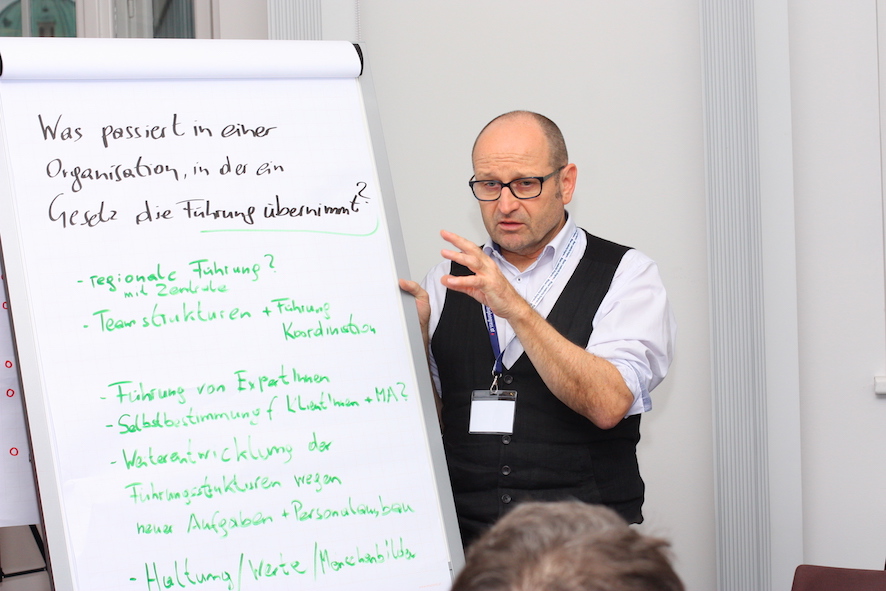 Was passiert in einer
Organisation, in der ein
Gesetz die Führung übernimmt?
- regionale Führung?
mit Zentrale
- Teamstrukturen + Führung
Koordination
- Führung von ExpertInnen
- Selbstbestimmung f KlientInnen + MA?
- Weiterentwicklung der
Führungsstrukturen wegen
neuer Aufgaben + Personalausbau
- Haltung/Werte/Menschenbilder